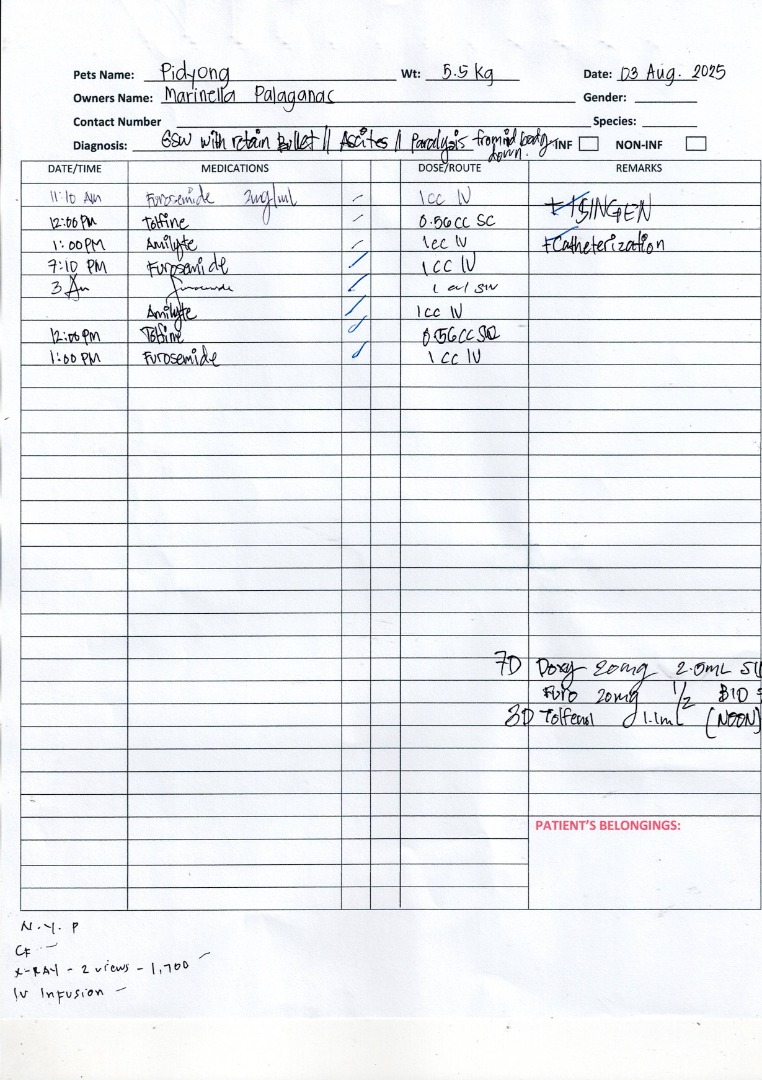 Pets Name: Pidyong Wt: 5.5 kg Date: 03 Aug. 2025
Owners Name: Marinella Palaganas Gender:
Contact Number Species:
Diagnosis: GSW with retain Bullet // Ascites // Paralysis from mid body down. INF NON-INF
DATE/TIME MEDICATIONS DOSE/ROUTE REMARKS
11:10 AM Furosemide 2mg/ml 1cc IV
12:00 PM Tolfine 0.56cc SC
1:00 PM Amilyte 1cc IV ±Catheterization
7:10 PM Furosemide 1cc IV
3 Am Furosemide
Amilyte 1cc IV
12:00 PM Tolfine 0.56cc
1:00 PM Furosemide 1 cc IV
7D Doxy 20mg 2.0mL
Furo 20mg 1/2 BID
3D Tolfenol 1.1ml (NOON)
PATIENT'S BELONGINGS:
N.Y.P
CF -
X-RAY - 2 views - 1,700 -
IV Infusion -